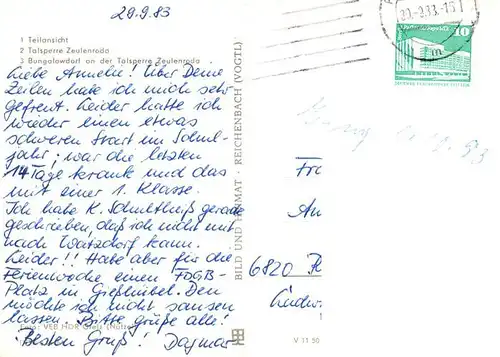 29.9.83
1 Teilansicht
2 Talsperre Zeulenroda
3 Bungalowdorf an der Talsperre Zeulenroda
Liebe Annelie! Über Deine
Zeilen habe ich mich sehr
gefreut. Leider hatte ich
wieder einen etwas
schweren Start im Schul-
jahr; war die letzten
14 Tage krank und das
mit einer 1. Klasse.
Ich habe K. Schultheiß gerade
geschrieben, daß ich nicht mit
nach Watzdorf kann.
Leider!! Habe aber für die
Ferienwoche einen FDGB-
Platz in Gießhübel. Den
möchte ich nicht sausen
lassen. Bitte grüße alle!
Foto: VEB HDR Greiz
Besten Gruß! Dagmar
BILD UND HEIMAT · REICHENBACH (VOGTL)
V 11 50
-9.83-15
m
10
Fr
An
6820 R